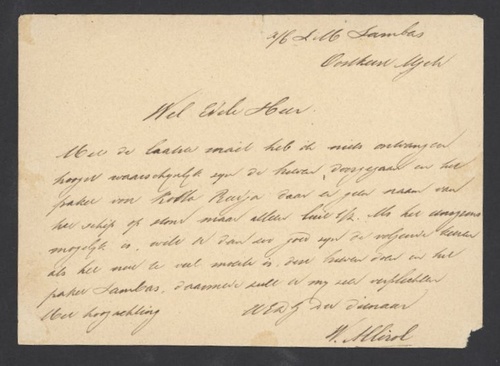 a/b S. M. Sambas
Oostkust Atjeh
Wel Edele Heer.
Met de laatste mail heb ik niets ontvangen
hoogst waarschijnlijk zijn de brieven doorgegaan in het
pakket voor Kotta Radja daar er geen naam van
het schip op stond maar alleen
mogelijk is, wilt U dan zoo goed zijn de volgende
als het niet te veel moeite is, deze brieven doen in het
pakket Sambas, daarmede zult U mij zeer verplichten
Met hoogachting UEd dienaar
W.